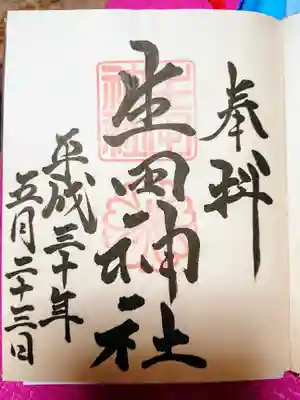 奉拝
生田神社
平成三十年
五月二十三日